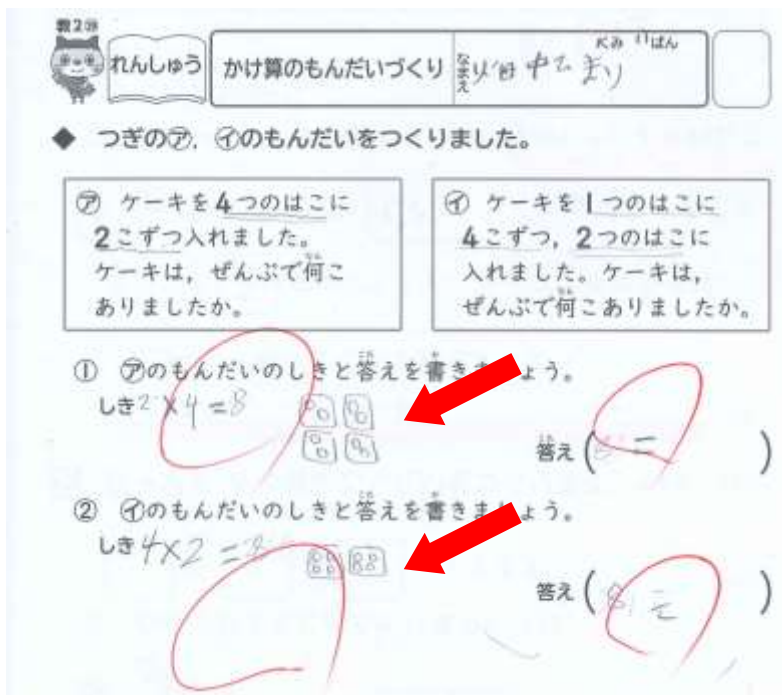 教2㊦
れんしゅう
かけ算のもんだいづくり
なまえ
くみ
ばん
◆ つぎの㋐,㋑のもんだいをつくりました。
㋐ ケーキを4つのはこに
2こずつ入れました。
ケーキは,ぜんぶで何こ
ありましたか。
㋑ ケーキを1つのはこに
4こずつ,2つのはこに
入れました。ケーキは,
ぜんぶで何こありましたか。
① ㋐のもんだいのしきと答えを書きましょう。
しき2×4=8
答え( こ )
② ㋑のもんだいのしきと答えを書きましょう。
しき4×2=8
答え(8こ)